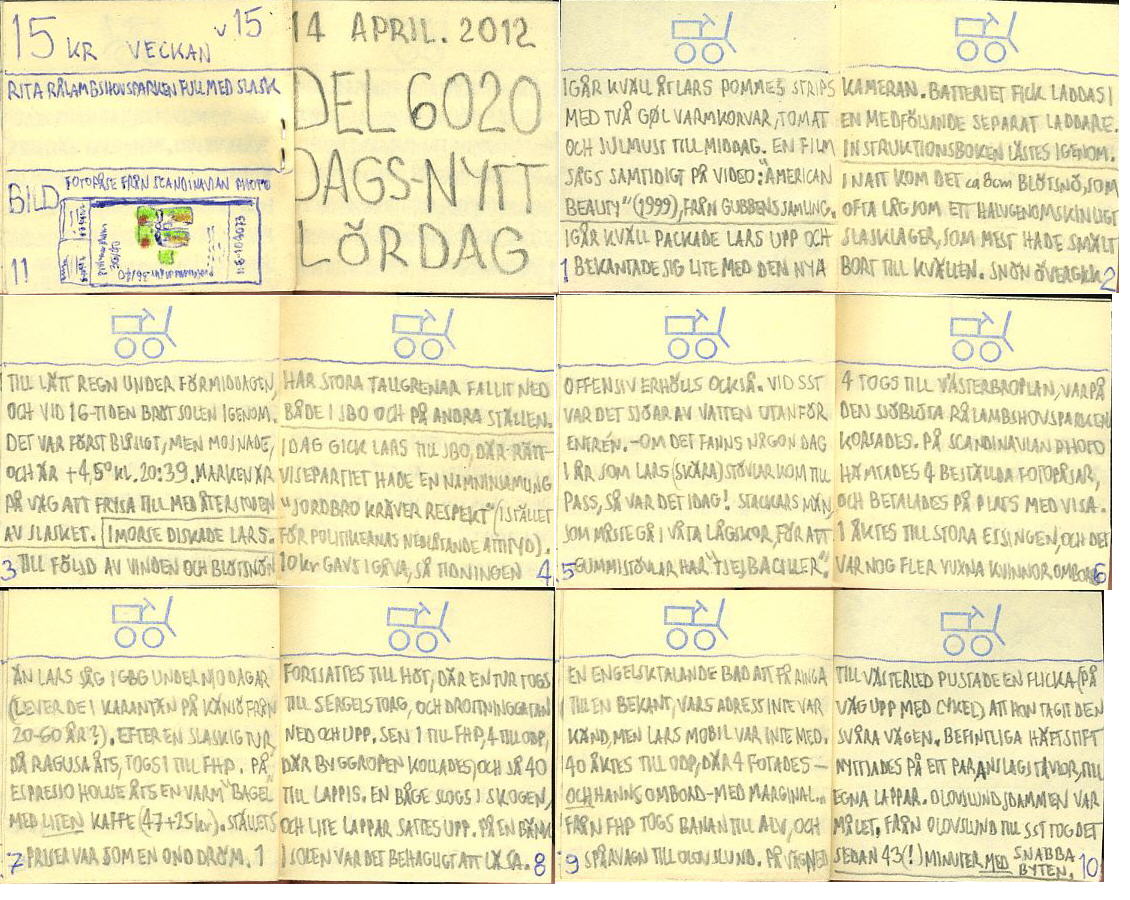 15 KR VECKAN v 15
RITA RÅLAMBSHOVSPARKEN FULL MED SLASK
BILD
FOTOPÅSE FRÅN SCANDINAVIAN PHOTO
11
14 APRIL. 2012
DEL 6020
DAGS-NYTT
LÖRDAG
IGÅR KVÄLL ÅT LARS POMMES STRIPS
MED TVÅ GØL VARMKORVAR, TOMAT
OCH JULMUST TILL MIDDAG. EN FILM
SÅGS SAMTIDIGT PÅ VIDEO: "AMERICAN
BEAUTY" (1999), FRÅN GUBBENS SAMLING.
IGÅR KVÄLL PACKADE LARS UPP OCH
1 BEKANTADE SIG LITE MED DEN NYA
KAMERAN. BATTERIET FICK LADDAS I
EN MEDFÖLJANDE SEPARAT LADDARE.
INSTRUKTIONSBOKEN LÄSTES IGENOM.
I NATT KOM DET ca 8cm BLÖTSNÖ, SOM
OFTA LÅG SOM ETT HALVGENOMSKINLIGT
SLASKLAGER, SOM MEST HADE SMÄLT
BORT TILL KVÄLLEN. SNÖN ÖVERGICK 2
TILL LÄTT REGN UNDER FÖRMIDDAGEN,
OCH VID 16-TIDEN BRÖT SOLEN IGENOM.
DET VAR FÖRST BLÅSIGT, MEN MOJNADE,
OCH ÄR +4,5° KL. 20:39. MARKEN ÄR
PÅ VÄG ATT FRYSA TILL MED ÅTERSTODEN
AV SLASKET. I MORSE DISKADE LARS.
3 TILL FÖLJD AV VINDEN OCH BLÖTSNÖN
HAR STORA TALLGRENAR FALLIT NED
BÅDE I JBO OCH PÅ ANDRA STÄLLEN.
IDAG GICK LARS TILL JBO, DÄR RÄTT-
VISEPARTIET HADE EN NAMNINSAMLING
"JORDBRO KRÄVER RESPEKT" (ISTÄLLET
FÖR POLITIKERNAS NEDLÅTANDE ATTITYD).
10 kr GAVS I GÅVA, SÅ TIDNINGEN 4
OFFENSIV ERHÖLLS OCKSÅ. VID SST
VAR DET SJÖAR AV VATTEN UTANFÖR
ENTRÉN. -OM DET FANNS NÅGON DAG
I ÅR SOM LARS (SKÄRA) STÖVLAR KOM TILL
PASS, SÅ VAR DET IDAG! STACKARS MÄN,
SOM MÅSTE GÅ I VÅTA LÅGSKOR, FÖR ATT
5 GUMMISTÖVLAR HAR "TJEJBACILLER".
4 TOGS TILL VÄSTERBROPLAN, VARPÅ
DEN SJÖBLÖTA RÅLAMBSHOVSPARKEN
KORSADES. PÅ SCANDINAVIAN PHOTO
HÄMTADES 4 BESTÄLLDA FOTOPÅSAR,
OCH BETALADES PÅ PLATS MED VISA.
1 ÅKTES TILL STORA ESSINGEN, OCH DET
VAR NOG FLER VUXNA KVINNOR OMBORD 6
ÄN LARS SÅG I GBG UNDER DAGAR
(LEVER DE I KARANTÄN PÅ KÄNSÖ FRÅN
20-60 ÅR?). EFTER EN SLASKIG TUR
DÅ RAGUSA ÅTS, TOGS 1 TILL FHP. PÅ
ESPRESSO HOUSE ÅTS EN VARM BAGEL
MED LITEN KAFFE (47+25kr). STÄLLETS
7 PRISER VAR SOM EN OND DRÖM. 1
FORTSATTES TILL HÖT, DÄR EN TUR TOGS
TILL SERGELS TORG, OCH DROTTNINGGATAN
NED OCH UPP. SEN 1 TILL FHP, 4 TILL ODP,
DÄR BYGGROPEN KOLLADES, OCH SÅ 40
TILL LAPPIS. EN BÅGE SLOGS I SKOGEN,
OCH LITE LAPPAR SATTES UPP. PÅ EN BÄNK
I SOLEN VAR DET BEHAGLIGT ATT LÄSA. 8
EN ENGELSKTALANDE BAD ATT FÅ RINGA
TILL EN BEKANT, VARS ADRESS INTE VAR
KÄND, MEN LARS MOBIL VAR INTE MED.
40 ÅKTES TILL ODP, DÄR 4 FOTADES —
OCH HANNS OMBORD - MED MARGINAL...
FRÅN FHP TOGS BANAN TILL ALV, OCH
9 SPÅRVAGN TILL OLOVSLUND. PÅ
TILL VÄSTERLED PUSTADE EN FLICKA (PÅ
VÄG UPP MED CYKEL) ATT HON TAGIT DEN
SVÅRA VÄGEN. BEFINTLIGA HÄFTSTIFT
NYTTJADES PÅ ETT PAR ANSLAGSTAVLOR, TILL
EGNA LAPPAR. OLOVSLUNDSDAMMEN VAR
MÅLET. FRÅN OLOVSLUND TILL SST TOG DET
SEDAN 43(!) MINUTER MED SNABBA
BYTEN. 10